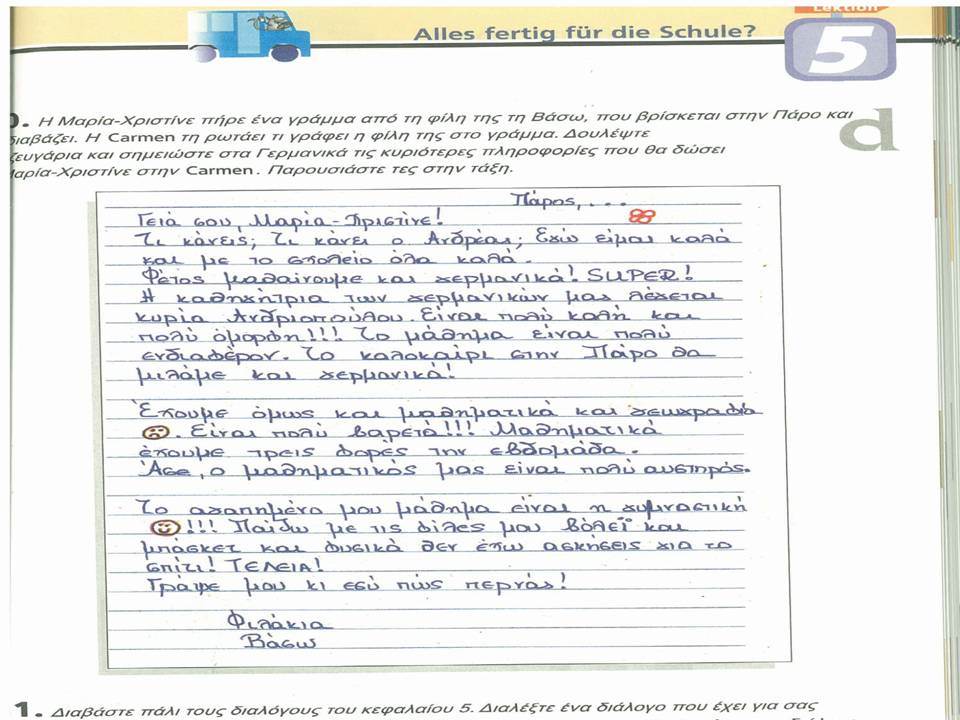 Lektion
Alles fertig für die Schule?
5
Η Μαρία-Χριστίνε πήρε ένα γράμμα από τη φίλη της τη Βάσω, που βρίσκεται στην Πάρο και
διαβάζει. Η Carmen τη ρωτάει τι γράφει η φίλη της στο γράμμα. Δουλέψτε
ζευγάρια και σημειώστε στα Γερμανικά τις κυριότερες πληροφορίες που θα δώσει
Μαρία-Χριστίνε στην Carmen. Παρουσιάστε τες στην τάξη.
d
Πάρος, ...
Γειά σου, Μαρία-Χριστίνε!
Τι κάνεις; Τι κάνει ο Ανδρέας; Εγώ είμαι καλά
και με το σχολείο όλα καλά.
Φέτος μαθαίνουμε και γερμανικά! SUPER!
Η καθηγήτρια των γερμανικών μας λέγεται
κυρία Ανδριοπούλου. Είναι πολύ καλή και
πολύ όμορφη!!! Το μάθημα είναι πολύ
ενδιαφέρον. Το καλοκαίρι στην Πάρο θα
μιλάμε και γερμανικά!
Έχουμε όμως και μαθηματικά και γεωγραφία
. Είναι πολύ βαρετά!!! Μαθηματικά
έχουμε τρεις φορές την εβδομάδα.
Άσε, ο μαθηματικός μας είναι πολύ αυστηρός.
Το αγαπημένο μου μάθημα είναι η γυμναστική
!!! Παίζω με τις φίλες μου βόλεϊ και
μπάσκετ και φυσικά δεν έχω ασκήσεις για το
σπίτι! ΤΕΛΕΙΑ!
Γράψε μου κι εσύ πώς περνάς!
Φιλάκια
Βάσω
1. Διαβάστε πάλι τους διαλόγους του κεφαλαίου 5. Διαλέξτε ένα διάλογο που έχει για σας